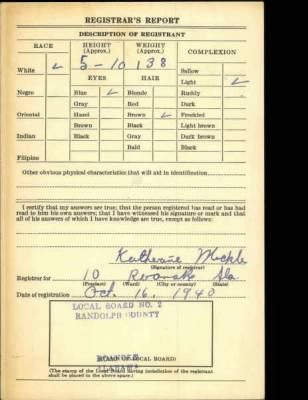 REGISTRAR'S REPORT
DESCRIPTION OF REGISTRANT
RACE HEIGHT (Approx.) WEIGHT (Approx.) COMPLEXION
White ✓ 5-10 138 Sallow
EYES HAIR Light ✓
Negro Blue ✓ Blonde Ruddy
Gray Red Dark
Oriental Hazel Brown ✓ Freckled
Brown Black Light brown
Indian Black Gray Dark brown
Bald Black
Filipino
Other obvious physical characteristics that will aid in identification
I certify that my answers are true; that the person registered has read or has had
read to him his own answers; that I have witnessed his signature or mark and that
all of his answers of which I have knowledge are true, except as follows:
Katherine
(Signature of registrar)
Registrar for 10 Roanoke Ala.
(Precinct) (Ward) (City or county) (State)
Date of registration Oct. 16, 1940
LOCAL BOARD NO. 2
RANDOLPH COUNTY
ROANOKE
ALABAMA
(STAMP OF LOCAL BOARD)
(The stamp of the Local Board having jurisdiction of the registrant
shall be placed in the above space.)